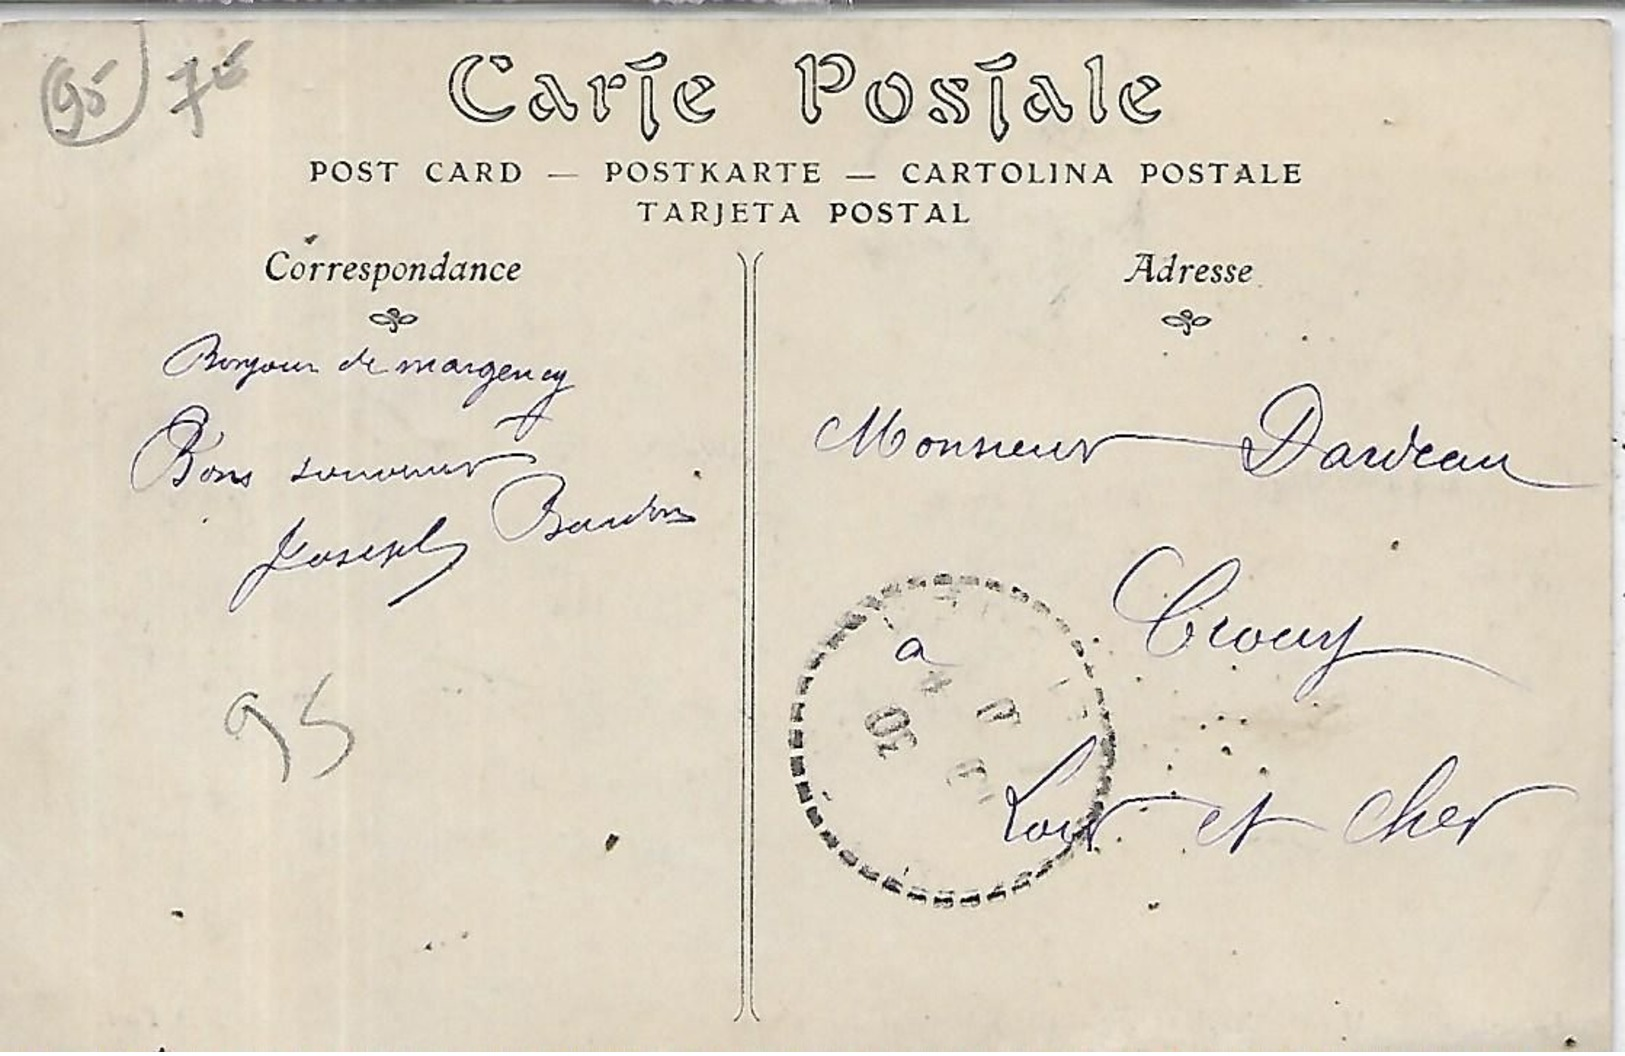 95 7€
Carte Postale
POST CARD — POSTKARTE — CARTOLINA POSTALE
TARJETA POSTAL
Correspondance
Bonjour de margency
Bons souvenir
Joseph Bardon
95
Adresse
Monsieur Dardeau
a Crouy
30
Loir et cher